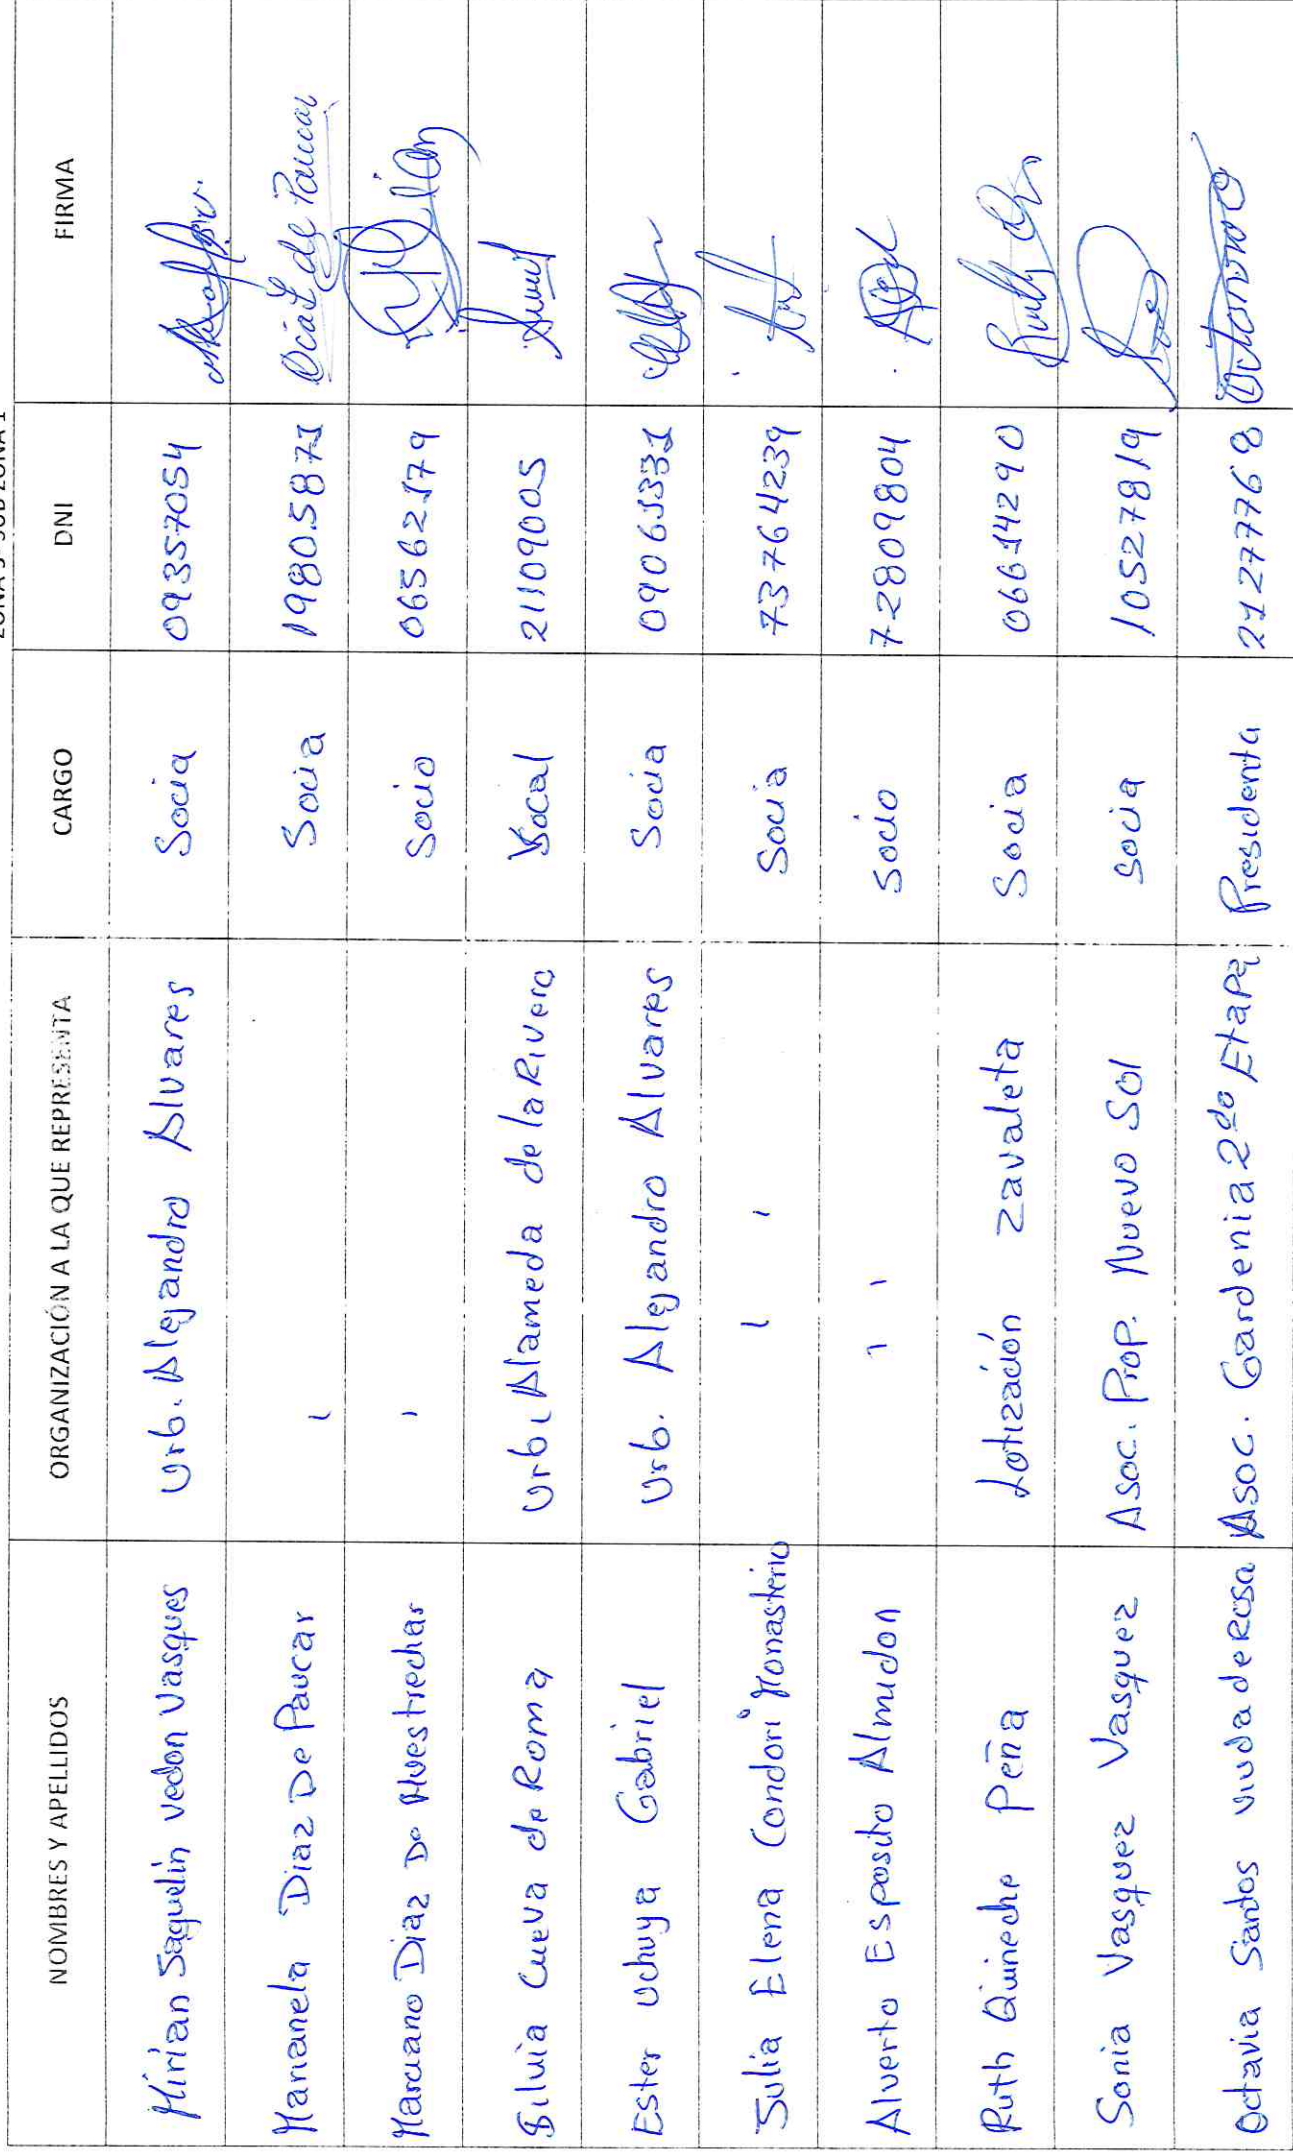 NOMBRES Y APELLIDOS ORGANIZACIÓN A LA QUE REPRESENTA CARGO DNI FIRMA
Mirian Saquelin Vedon Vasques Urb. Alejandro Alvares Socia 09357054
Marianela Diaz De Paucar ı Socia 19805871 Ocial de Paucar
Marciano Diaz De Huestrechar ı Socio 06562179
Silvia Cueva de Roma Urb. Alameda de la Rivera Vocal 21109005
Ester Uchuya Gabriel Urb. Alejandro Alvares Socia 09061331
Julia Elena Condori Monasterio ı ı Socia 73764239
Alverto Esposito Almidon ı ı Socio 72809804
Ruth Quineche Peña Lotización Zavaleta Socia 06614290
Sonia Vasquez Vasquez Asoc. Prop. Nuevo Sol Socia 10527819
Octavia Santos viuda de Rosa Asoc. Gardenia 2do Etapa Presidenta 21277768